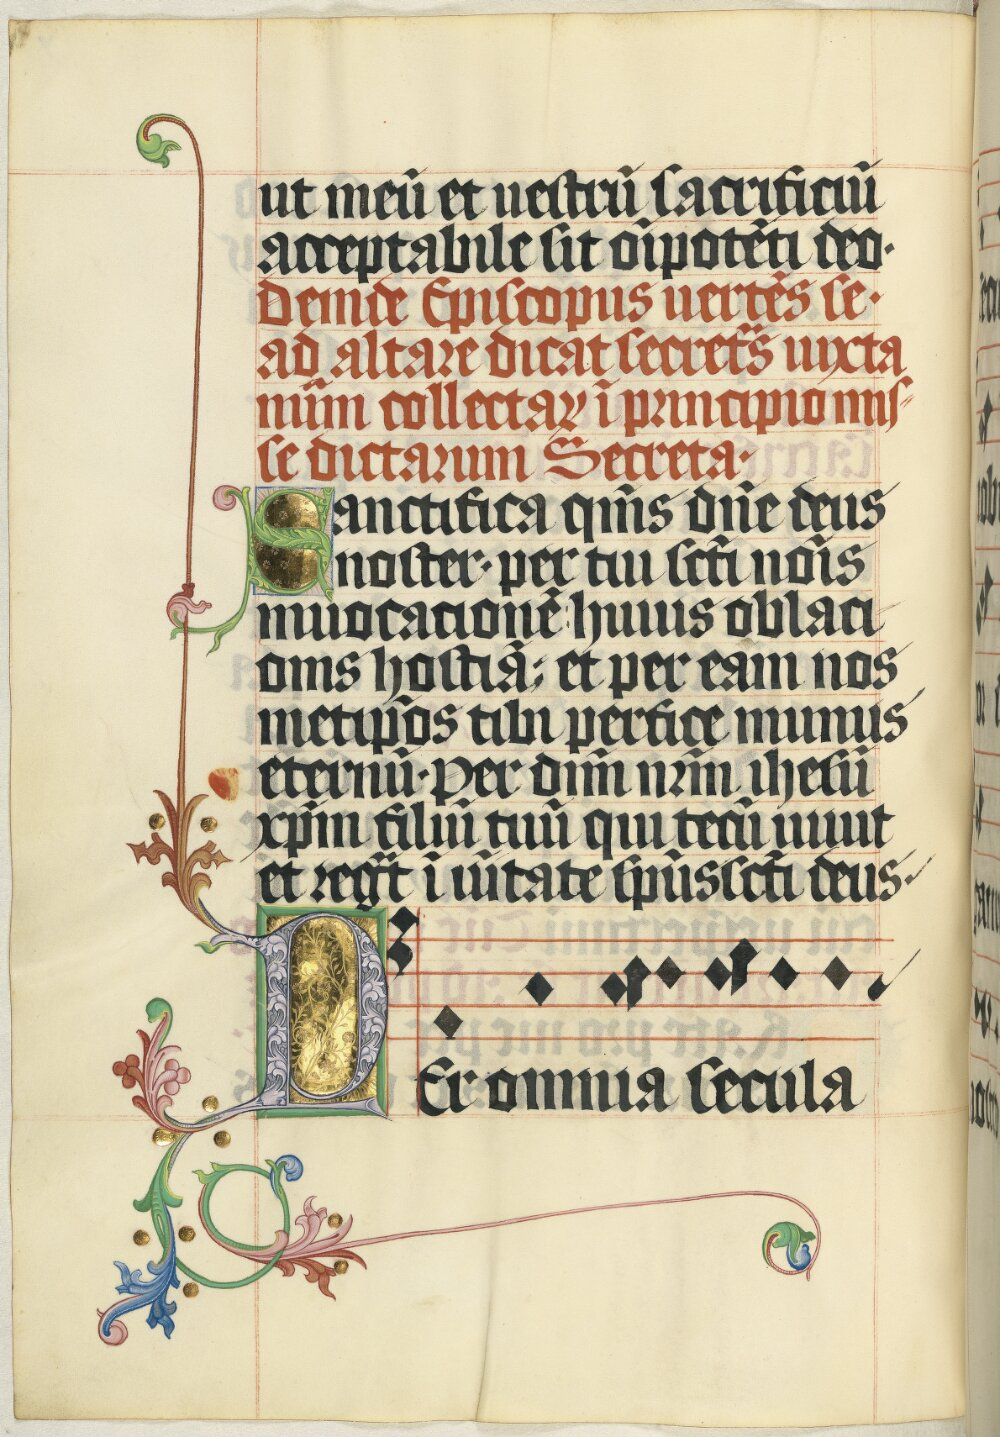 ut meū et uestrū sacrificiū
acceptabile sit oīpotēti deo·
Deinde Episcopus uertēs se·
ad altare dicat secretas̄ iuxta
num̄ collectaꝝ ī principio mis-
se dictarum Secreta·
Sanctifica qm̄s dn̄e deus
noster· per tui sct̄i noīs
inuocationē huius oblati
onis hostiā; et per eam nos
metip̄os tibi perfice munus
eternū· Per dn̄m nr̄m ihesū
xp̄m filiū tuū qui tecū uiuit
et regt̄ ī uītate sp̄us sct̄i deus·
PEr omnia secula